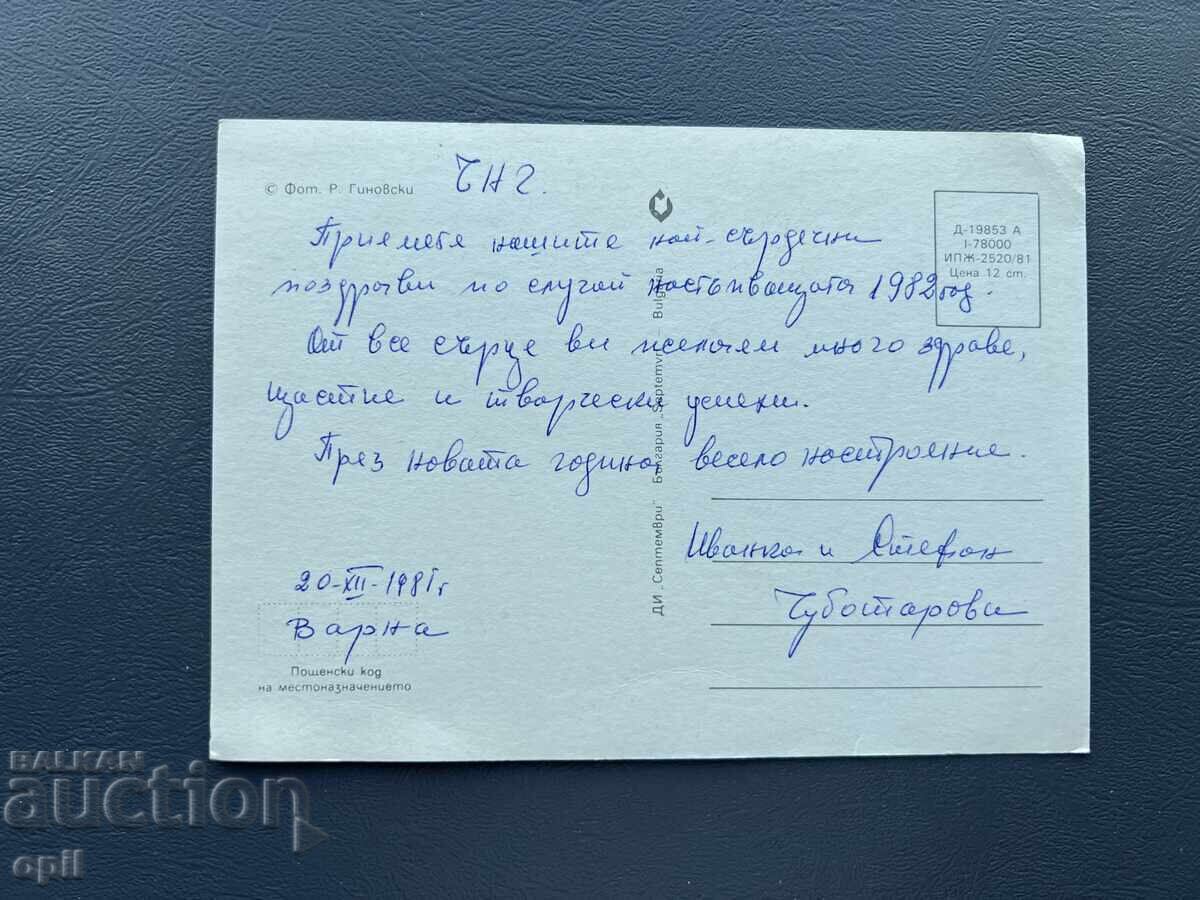 © Фот. Р. Гиновски
ЧНГ.
Приемете нашите най-сърдечни
поздрави по случай настъпващата 1982 год.
От все сърце ви желаем много здраве,
щастие и творчески успехи.
През новата година весело настроение.
Иванка и Стефан
Чуботарови
20-XII-1981 г
Варна
Пощенски код
на местоназначението
ДИ „Септември" България „Septemvri" Bulgaria
Д-19853 А
I-78000
ИПЖ-2520/81
Цена 12 ст.
BALKAN
auction
opil